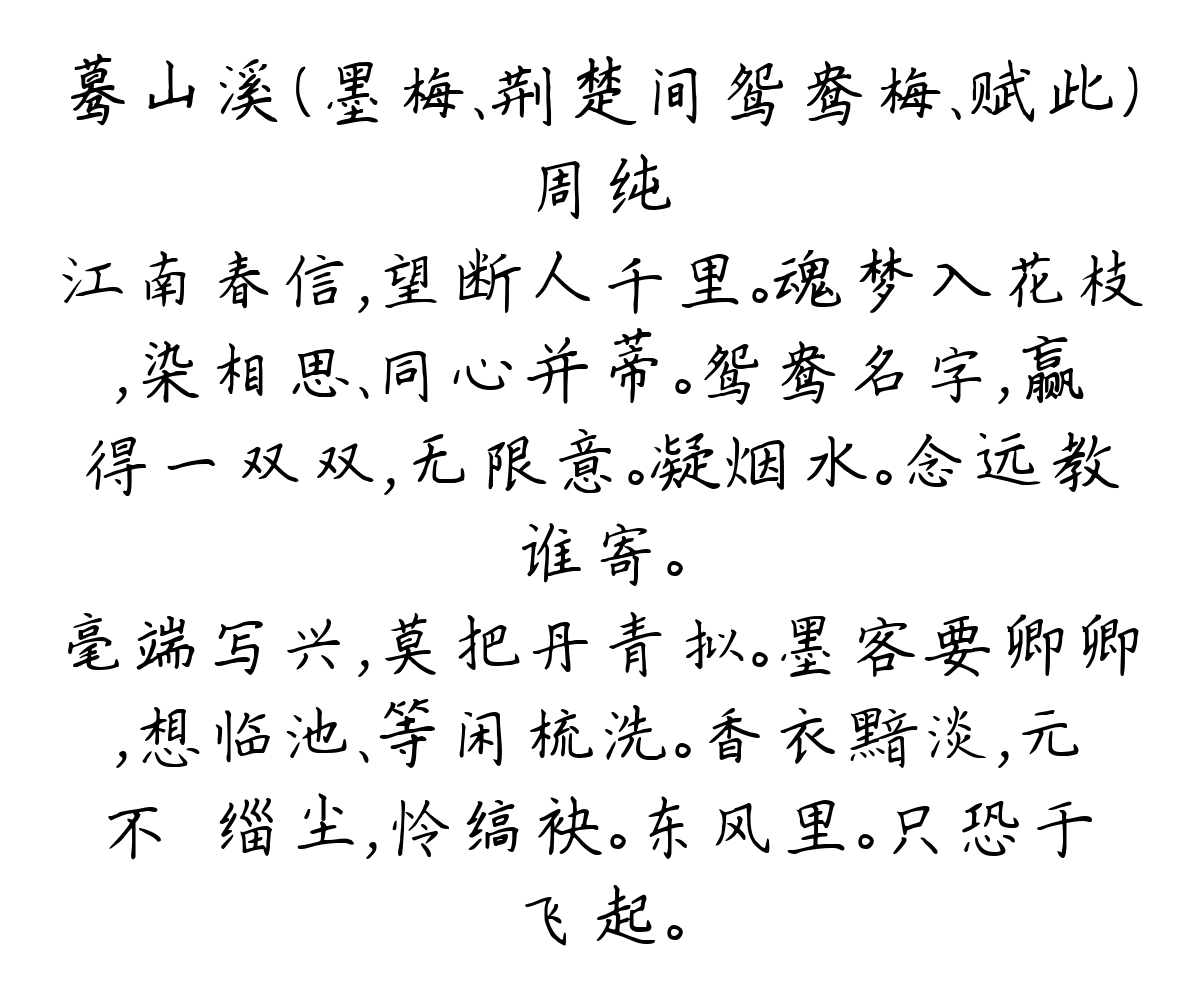 蓦山溪(墨梅、荆楚间鸳鸯梅、赋此)
周纯
江南春信,望断人千里。魂梦入花枝
,染相思、同心并蒂。鸳鸯名字,赢
得一双双,无限意。凝烟水。念远教
谁寄。
毫端写兴,莫把丹青拟。墨客要卿卿
,想临池、等闲梳洗。香衣黯淡,元
不 缁尘,怜缟袂。东风里。只恐于
飞起。